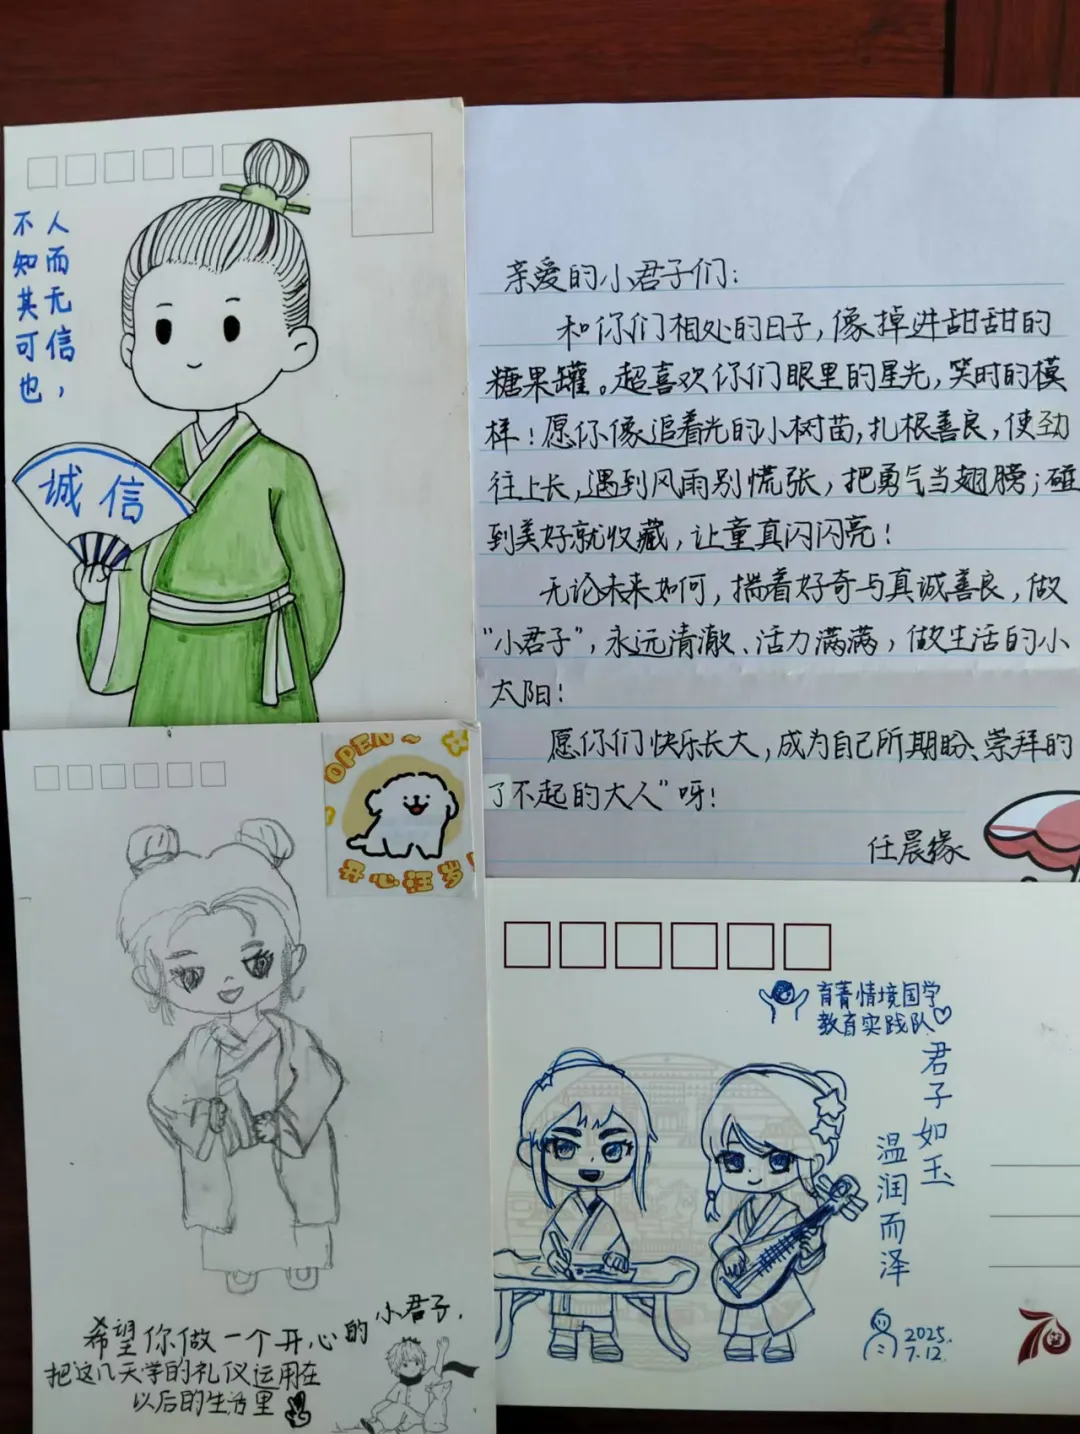 人而无信，
不知其可也
诚信
亲爱的小君子们：
和你们相处的日子，像掉进甜甜的
糖果罐。超喜欢你们眼里的星光，笑时的模
样！愿你像追着光的小树苗，扎根善良，使劲
往上长，遇到风雨别慌张，把勇气当翅膀；碰
到美好就收藏，让童真闪闪亮！
无论未来如何，揣着好奇与真诚善良，做
“小君子”，永远清澈、活力满满，做生活的小
太阳！
愿你们快乐长大，成为自己所期盼、崇拜的
了不起的大人”呀！
任晨缘
OPEN~
开心汪岁!
希望你做一个开心的小君子，
把这几天学的礼仪运用在
以后的生活里
育菁情境国学
教育实践队
君子如玉
温润而泽
2025.
7.12.
70